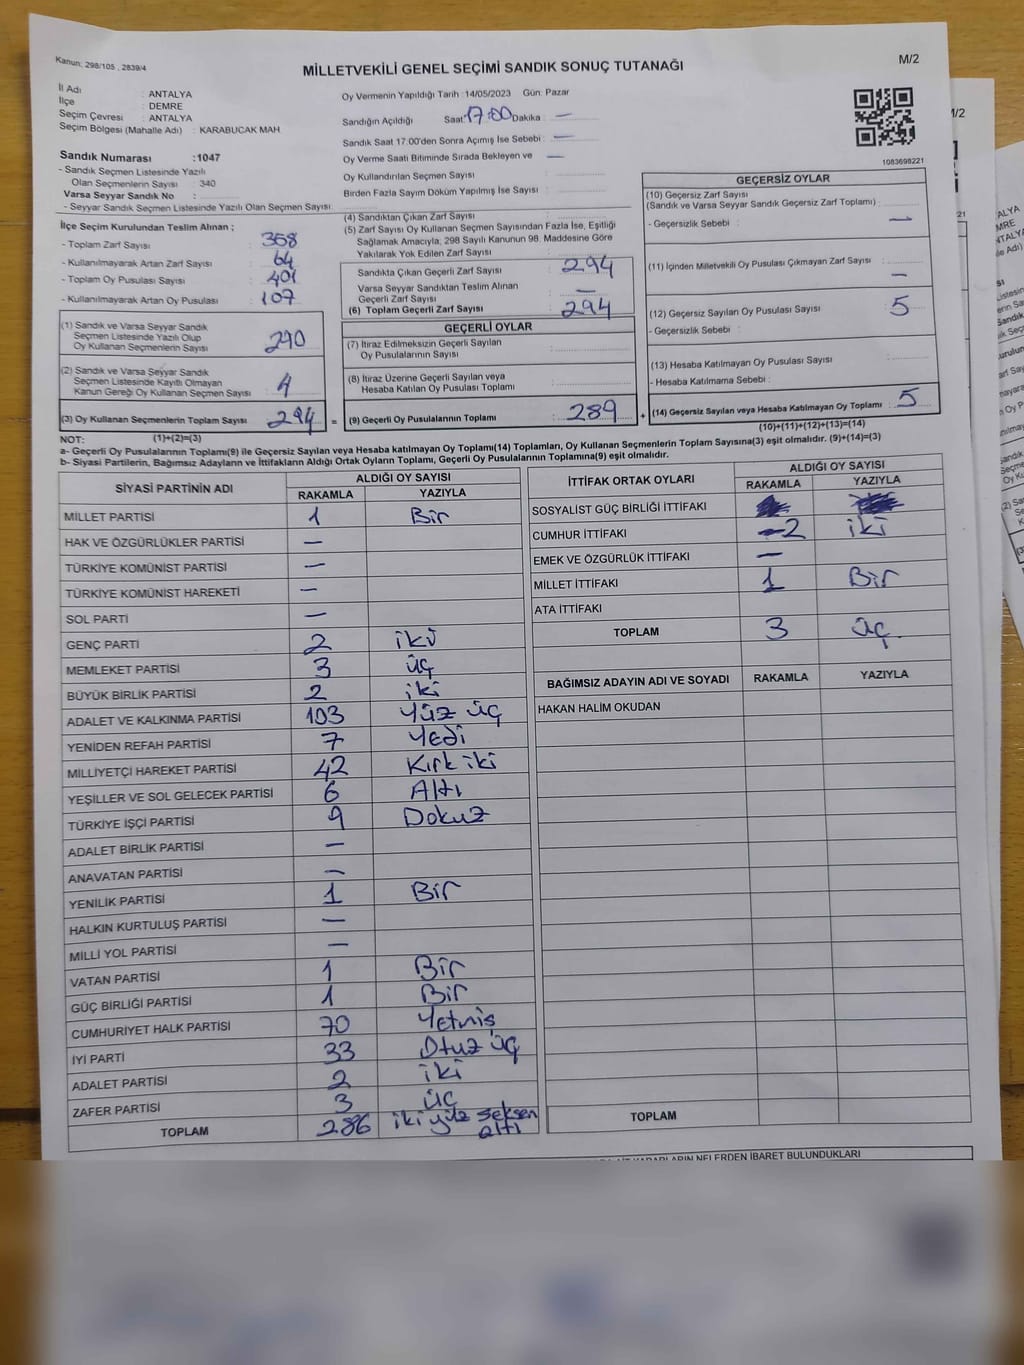 Kanun: 298/105 , 2839/4
MİLLETVEKİLİ GENEL SEÇİMİ SANDIK SONUÇ TUTANAĞI
M/2
İl Adı : ANTALYA
İlçe : DEMRE
Seçim Çevresi : ANTALYA
Seçim Bölgesi (Mahalle Adı) : KARABUCAK MAH
Sandık Numarası :1047
- Sandık Seçmen Listesinde Yazılı
Olan Seçmenlerin Sayısı : 340
Varsa Seyyar Sandık No :
- Seyyar Sandık Seçmen Listesinde Yazılı Olan Seçmen Sayısı:
Oy Vermenin Yapıldığı Tarih :14/05/2023 Gün: Pazar
Sandığın Açıldığı Saat: 17:00 Dakika : —
Sandık Saat 17:00'den Sonra Açımış İse Sebebi : —
Oy Verme Saati Bitiminde Sırada Bekleyen ve —
Oy Kullandırılan Seçmen Sayısı :
Birden Fazla Sayım Döküm Yapılmış İse Sayısı :
1083698221
İlçe Seçim Kurulundan Teslim Alınan ;
- Toplam Zarf Sayısı : 358
- Kullanılmayarak Artan Zarf Sayısı : 64
- Toplam Oy Pusulası Sayısı : 401
- Kullanılmayarak Artan Oy Pusulası : 107
(1) Sandık ve Varsa Seyyar Sandık
Seçmen Listesinde Yazılı Olup
Oy Kullanan Seçmenlerin Sayısı : 290
(2) Sandık ve Varsa Seyyar Sandık
Seçmen Listesinde Kayıtlı Olmayan
Kanun Gereği Oy Kullanan Seçmen Sayısı : 4
(3) Oy Kullanan Seçmenlerin Toplam Sayısı : 294
(4) Sandıktan Çıkan Zarf Sayısı :
(5) Zarf Sayısı Oy Kullanan Seçmen Sayısından Fazla İse, Eşitliği
Sağlamak Amacıyla; 298 Sayılı Kanunun 98. Maddesine Göre
Yakılarak Yok Edilen Zarf Sayısı :
Sandıkta Çıkan Geçerli Zarf Sayısı : 294
Varsa Seyyar Sandıktan Teslim Alınan
Geçerli Zarf Sayısı : —
(6) Toplam Geçerli Zarf Sayısı : 294
GEÇERLİ OYLAR
(7) İtiraz Edilmeksizin Geçerli Sayılan
Oy Pusulalarının Sayısı :
(8) İtiraz Üzerine Geçerli Sayılan veya
Hesaba Katılan Oy Pusulası Toplamı :
= (9) Geçerli Oy Pusulalarının Toplamı : 289
GEÇERSİZ OYLAR
(10) Geçersiz Zarf Sayısı
(Sandık ve Varsa Seyyar Sandık Geçersiz Zarf Toplamı) :
- Geçersizlik Sebebi : —
(11) İçinden Milletvekili Oy Pusulası Çıkmayan Zarf Sayısı :
—
(12) Geçersiz Sayılan Oy Pusulası Sayısı : 5
- Geçersizlik Sebebi :
(13) Hesaba Katılmayan Oy Pusulası Sayısı :
- Hesaba Katılmama Sebebi :
+ (14) Geçersiz Sayılan veya Hesaba Katılmayan Oy Toplamı : 5
(10)+(11)+(12)+(13)=(14)
NOT: (1)+(2)=(3)
a- Geçerli Oy Pusulalarının Toplamı(9) ile Geçersiz Sayılan veya Hesaba katılmayan Oy Toplamı(14) Toplamları, Oy Kullanan Seçmenlerin Toplam Sayısına(3) eşit olmalıdır. (9)+(14)=(3)
b- Siyasi Partilerin, Bağımsız Adayların ve İttifakların Aldığı Ortak Oyların Toplamı, Geçerli Oy Pusulalarının Toplamına(9) eşit olmalıdır.
SİYASİ PARTİNİN ADI ALDIĞI OY SAYISI
RAKAMLA YAZIYLA
MİLLET PARTİSİ 1 Bir
HAK VE ÖZGÜRLÜKLER PARTİSİ —
TÜRKİYE KOMÜNİST PARTİSİ —
TÜRKİYE KOMÜNİST HAREKETİ —
SOL PARTİ —
GENÇ PARTİ 2 iki
MEMLEKET PARTİSİ 3 üç
BÜYÜK BİRLİK PARTİSİ 2 iki
ADALET VE KALKINMA PARTİSİ 103 Yüz üç
YENİDEN REFAH PARTİSİ 7 Yedi
MİLLİYETÇİ HAREKET PARTİSİ 42 Kırk iki
YEŞİLLER VE SOL GELECEK PARTİSİ 6 Altı
TÜRKİYE İŞÇİ PARTİSİ 9 Dokuz
ADALET BİRLİK PARTİSİ —
ANAVATAN PARTİSİ —
YENİLİK PARTİSİ 1 Bir
HALKIN KURTULUŞ PARTİSİ —
MİLLİ YOL PARTİSİ —
VATAN PARTİSİ 1 Bir
GÜÇ BİRLİĞİ PARTİSİ 1 Bir
CUMHURİYET HALK PARTİSİ 70 Yetmiş
İYİ PARTİ 33 Otuz üç
ADALET PARTİSİ 2 iki
ZAFER PARTİSİ 3 üç
TOPLAM 286 iki yüz seksen
altı
İTTİFAK ORTAK OYLARI ALDIĞI OY SAYISI
RAKAMLA YAZIYLA
SOSYALİST GÜÇ BİRLİĞİ İTTİFAKI
CUMHUR İTTİFAKI 2 iki
EMEK VE ÖZGÜRLÜK İTTİFAKI —
MİLLET İTTİFAKI 1 Bir
ATA İTTİFAKI
TOPLAM 3 üç.
BAĞIMSIZ ADAYIN ADI VE SOYADI RAKAMLA YAZIYLA
HAKAN HALİM OKUDAN
TOPLAM
NELERDEN İBARET BULUNDUKLARI